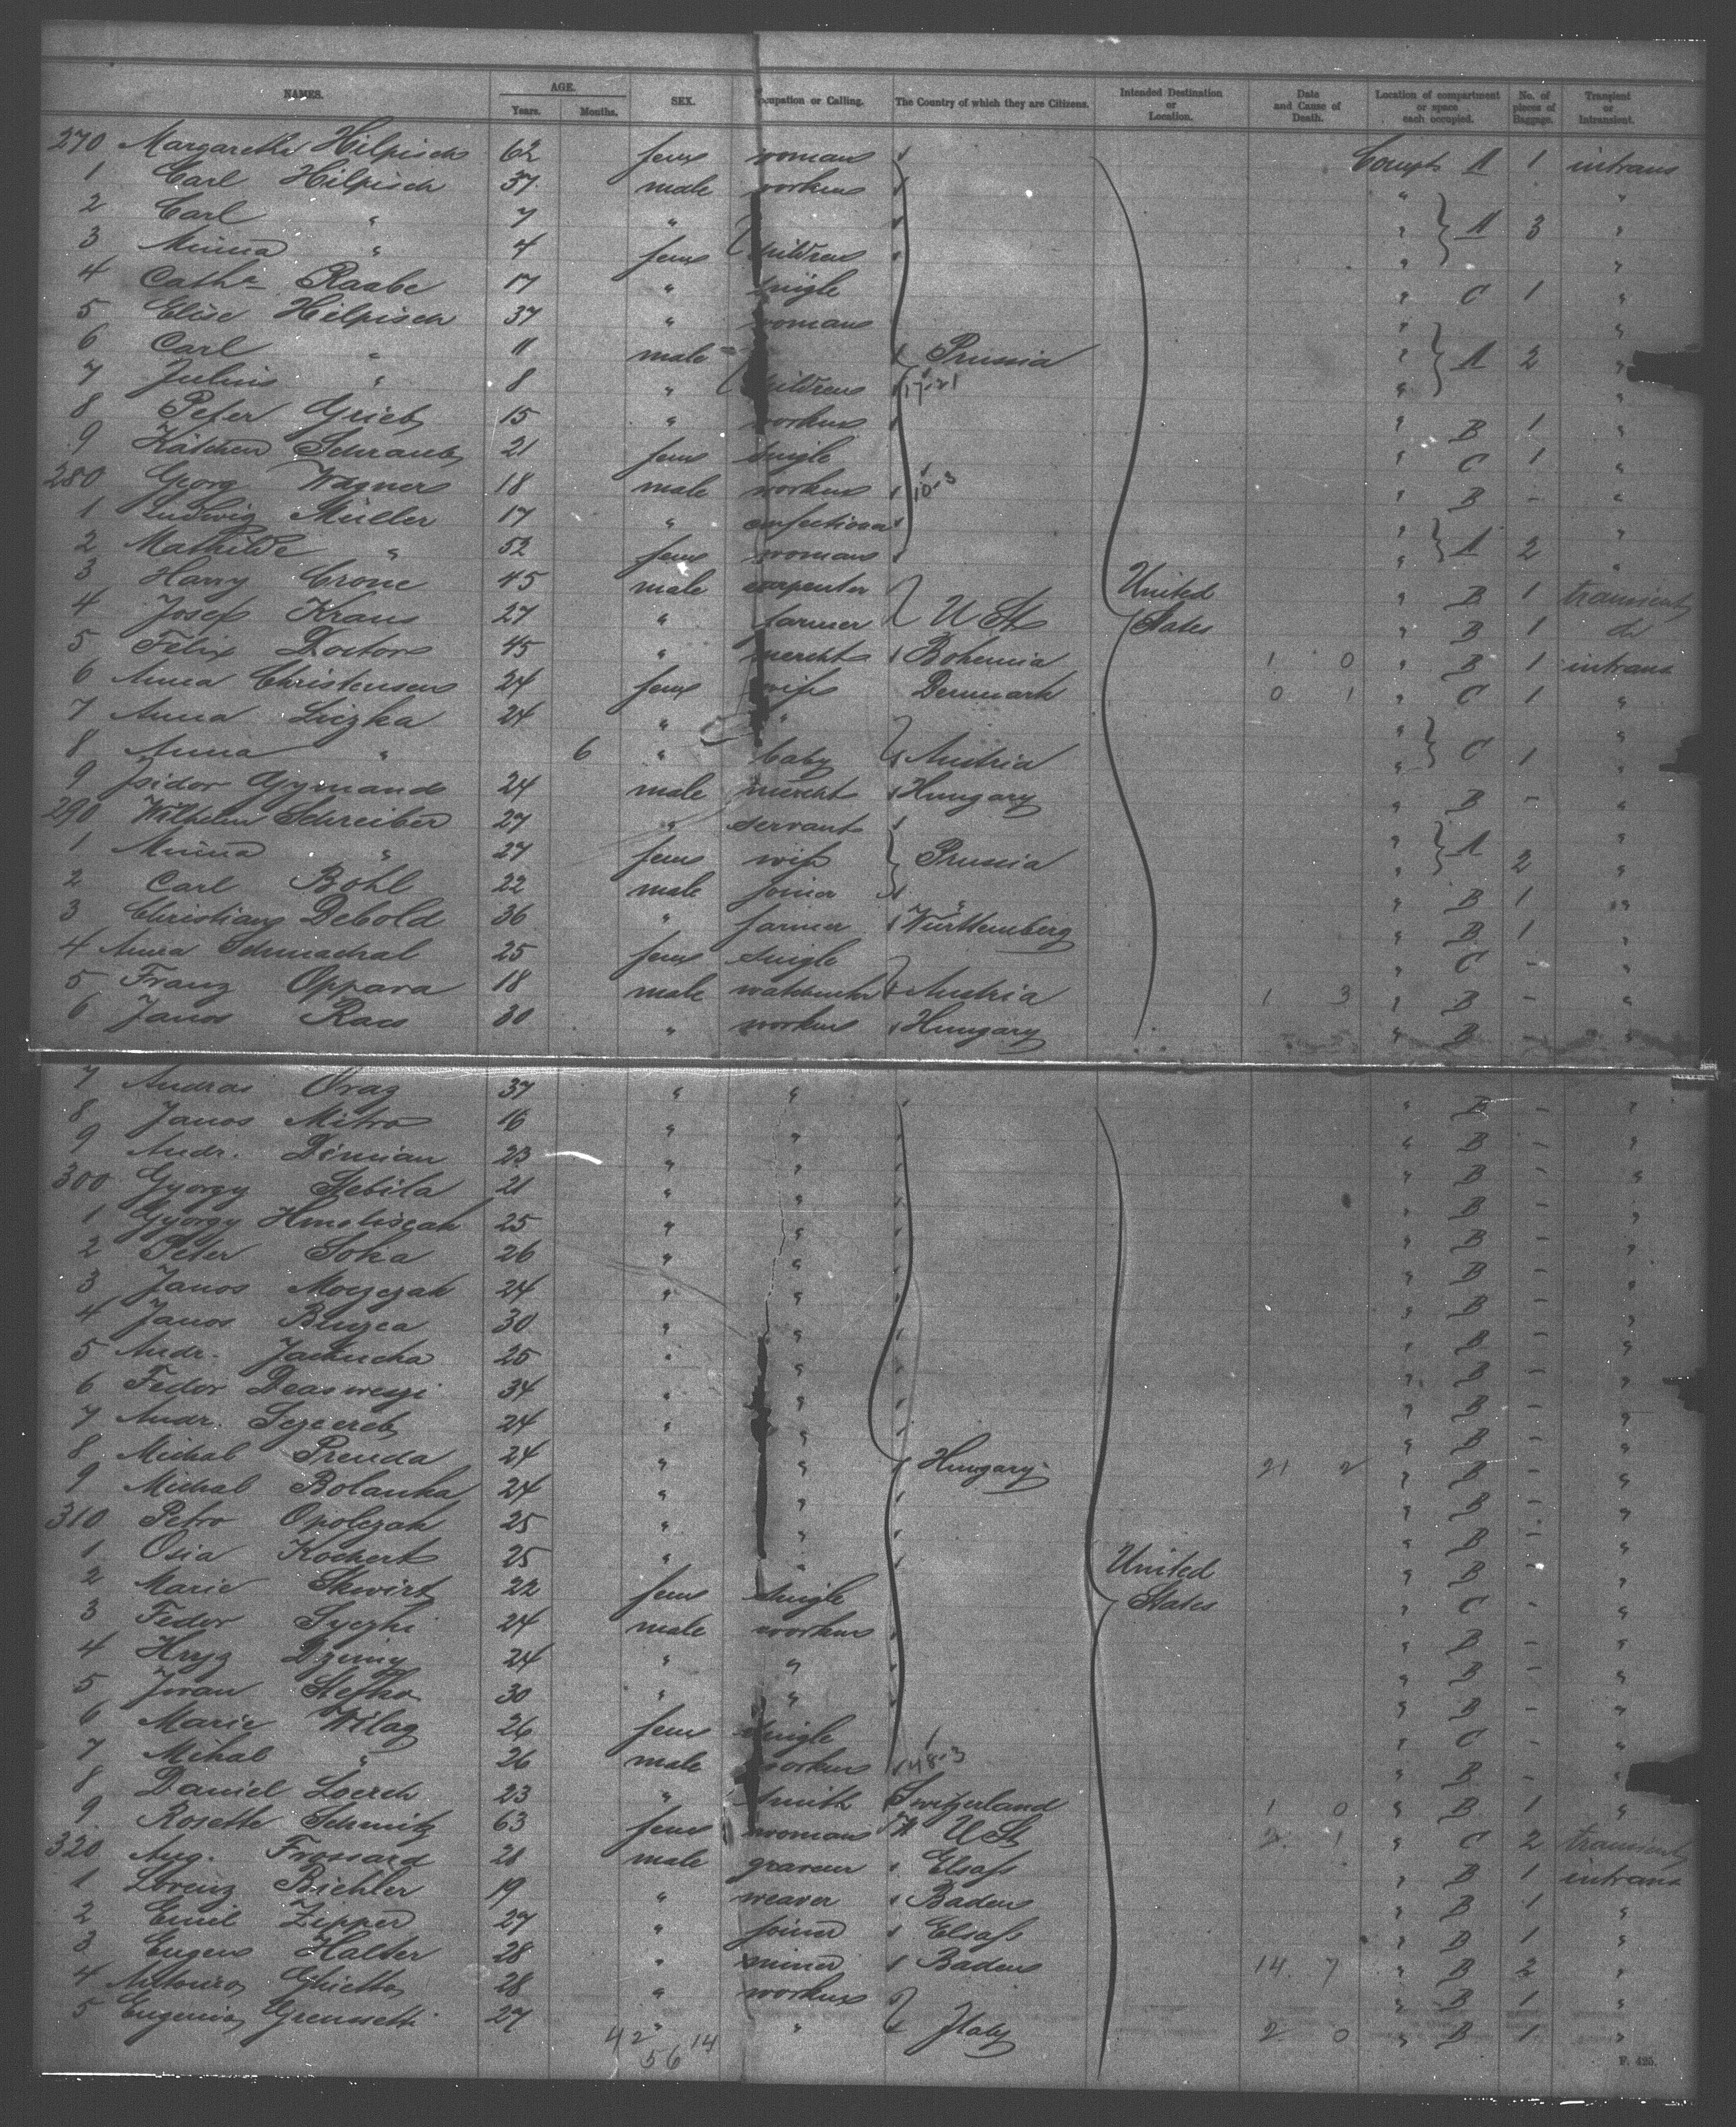 NAMES. AGE. Years. Months. SEX. Occupation or Calling. The Country of which they are Citizens. Intended Destination or Location. Date and Cause of Death. Location of compartment or space each occupied. No. of pieces of Baggage. Transient or Intransient.
270 Margarethe Hilpisch 62 fem woman Compt A 1 intrans
1 Carl Hilpisch 37 male worker " "
2 Carl " 7 " " A 3 "
3 Minna " 4 fem children " "
4 Catha Raabe 17 " single " C 1 "
5 Elise Hilpisch 37 " woman " "
6 Carl " 11 male Prussia " A 2 "
7 Julius " 8 " children 17-21 " "
8 Peter Grieb 15 " worker " B 1 "
9 Kätchen Schraub 21 fem single " C 1 "
280 Georg Wagner 18 male worker 10-3 " B - "
1 Ludwig Müller 17 " confectioner " "
2 Mathilde " 52 fem woman " A 2 "
3 Harry Crone 45 male carpenter United " B 1 transient
4 Josef Kraus 27 " farmer U St States " B 1 do
5 Felix Doctor 45 " mercht Bohemia 1 0 " B 1 intrans
6 Anna Christensen 24 fem wife Denmark 0 1 " C 1 "
7 Anna Liczka 24 " " " "
8 Anna " 6 " baby Austria " C 1 "
9 Isidor Gymand 24 male mercht Hungary " B - "
290 Wilhelm Schreiber 27 " servant " "
1 Minna " 27 fem wife Prussia " A 2 "
2 Carl Bohl 22 male joiner " B 1 "
3 Christian Debold 36 " farmer Württemberg " B 1 "
4 Anna Schmachal 25 fem single " C - "
5 Franz Oppara 18 male watchmker Austria 1 3 " B - "
6 Janos Racs 30 " worker Hungary " B - "
7 Andras Oraz 37 " " " B - "
8 Janos Mitro 16 " " " B - "
9 Andr. Dimian 23 " " " B - "
300 Gyorgy Stebila 21 " " " B - "
1 Gyorgy 25 " " " B - "
2 Peter Soka 26 " " " B - "
3 Janos Moczczak 24 " " " B - "
4 Janos 30 " " " B - "
5 Andr. 25 " " " B - "
6 Fedor 34 " " " B - "
7 Andr. 24 " " " B - "
8 Michal Prenda 24 " " Hungary 21 2 " B - "
9 Michal Bolanka 24 " " " B - "
310 Petro Opolczak 25 " " " B - "
1 Osia Kochert 25 " " United " B - "
2 Marie Skwirt 22 fem single States " C - "
3 Fedor 24 male worker " B - "
4 24 " " " B - "
5 Jovan Stefko 30 " " " B - "
6 Marie Wilag 26 fem single " C - "
7 Mihal " 26 male worker 48-3 " B - "
8 Daniel Loerch 23 " smith Switzerland 1 0 " B 1 "
9 Rosette Schmitz 63 fem woman U St 2 1 " C 2 transient
320 Aug. Frossard 28 male graveur Elsaß " B 1 intrans
1 Lorenz Bichler 19 " weaver Baden " B 1 "
2 Emil Zipper 27 " joiner Elsaß " B 1 "
3 Eugen Halter 28 " miner Baden 14 7 " B 2 "
4 Antonio Ghietto 28 " worker " B 1 "
5 Eugenio 27 " " Italy 2 0 " B 1 "
42 14
56
F. 425.